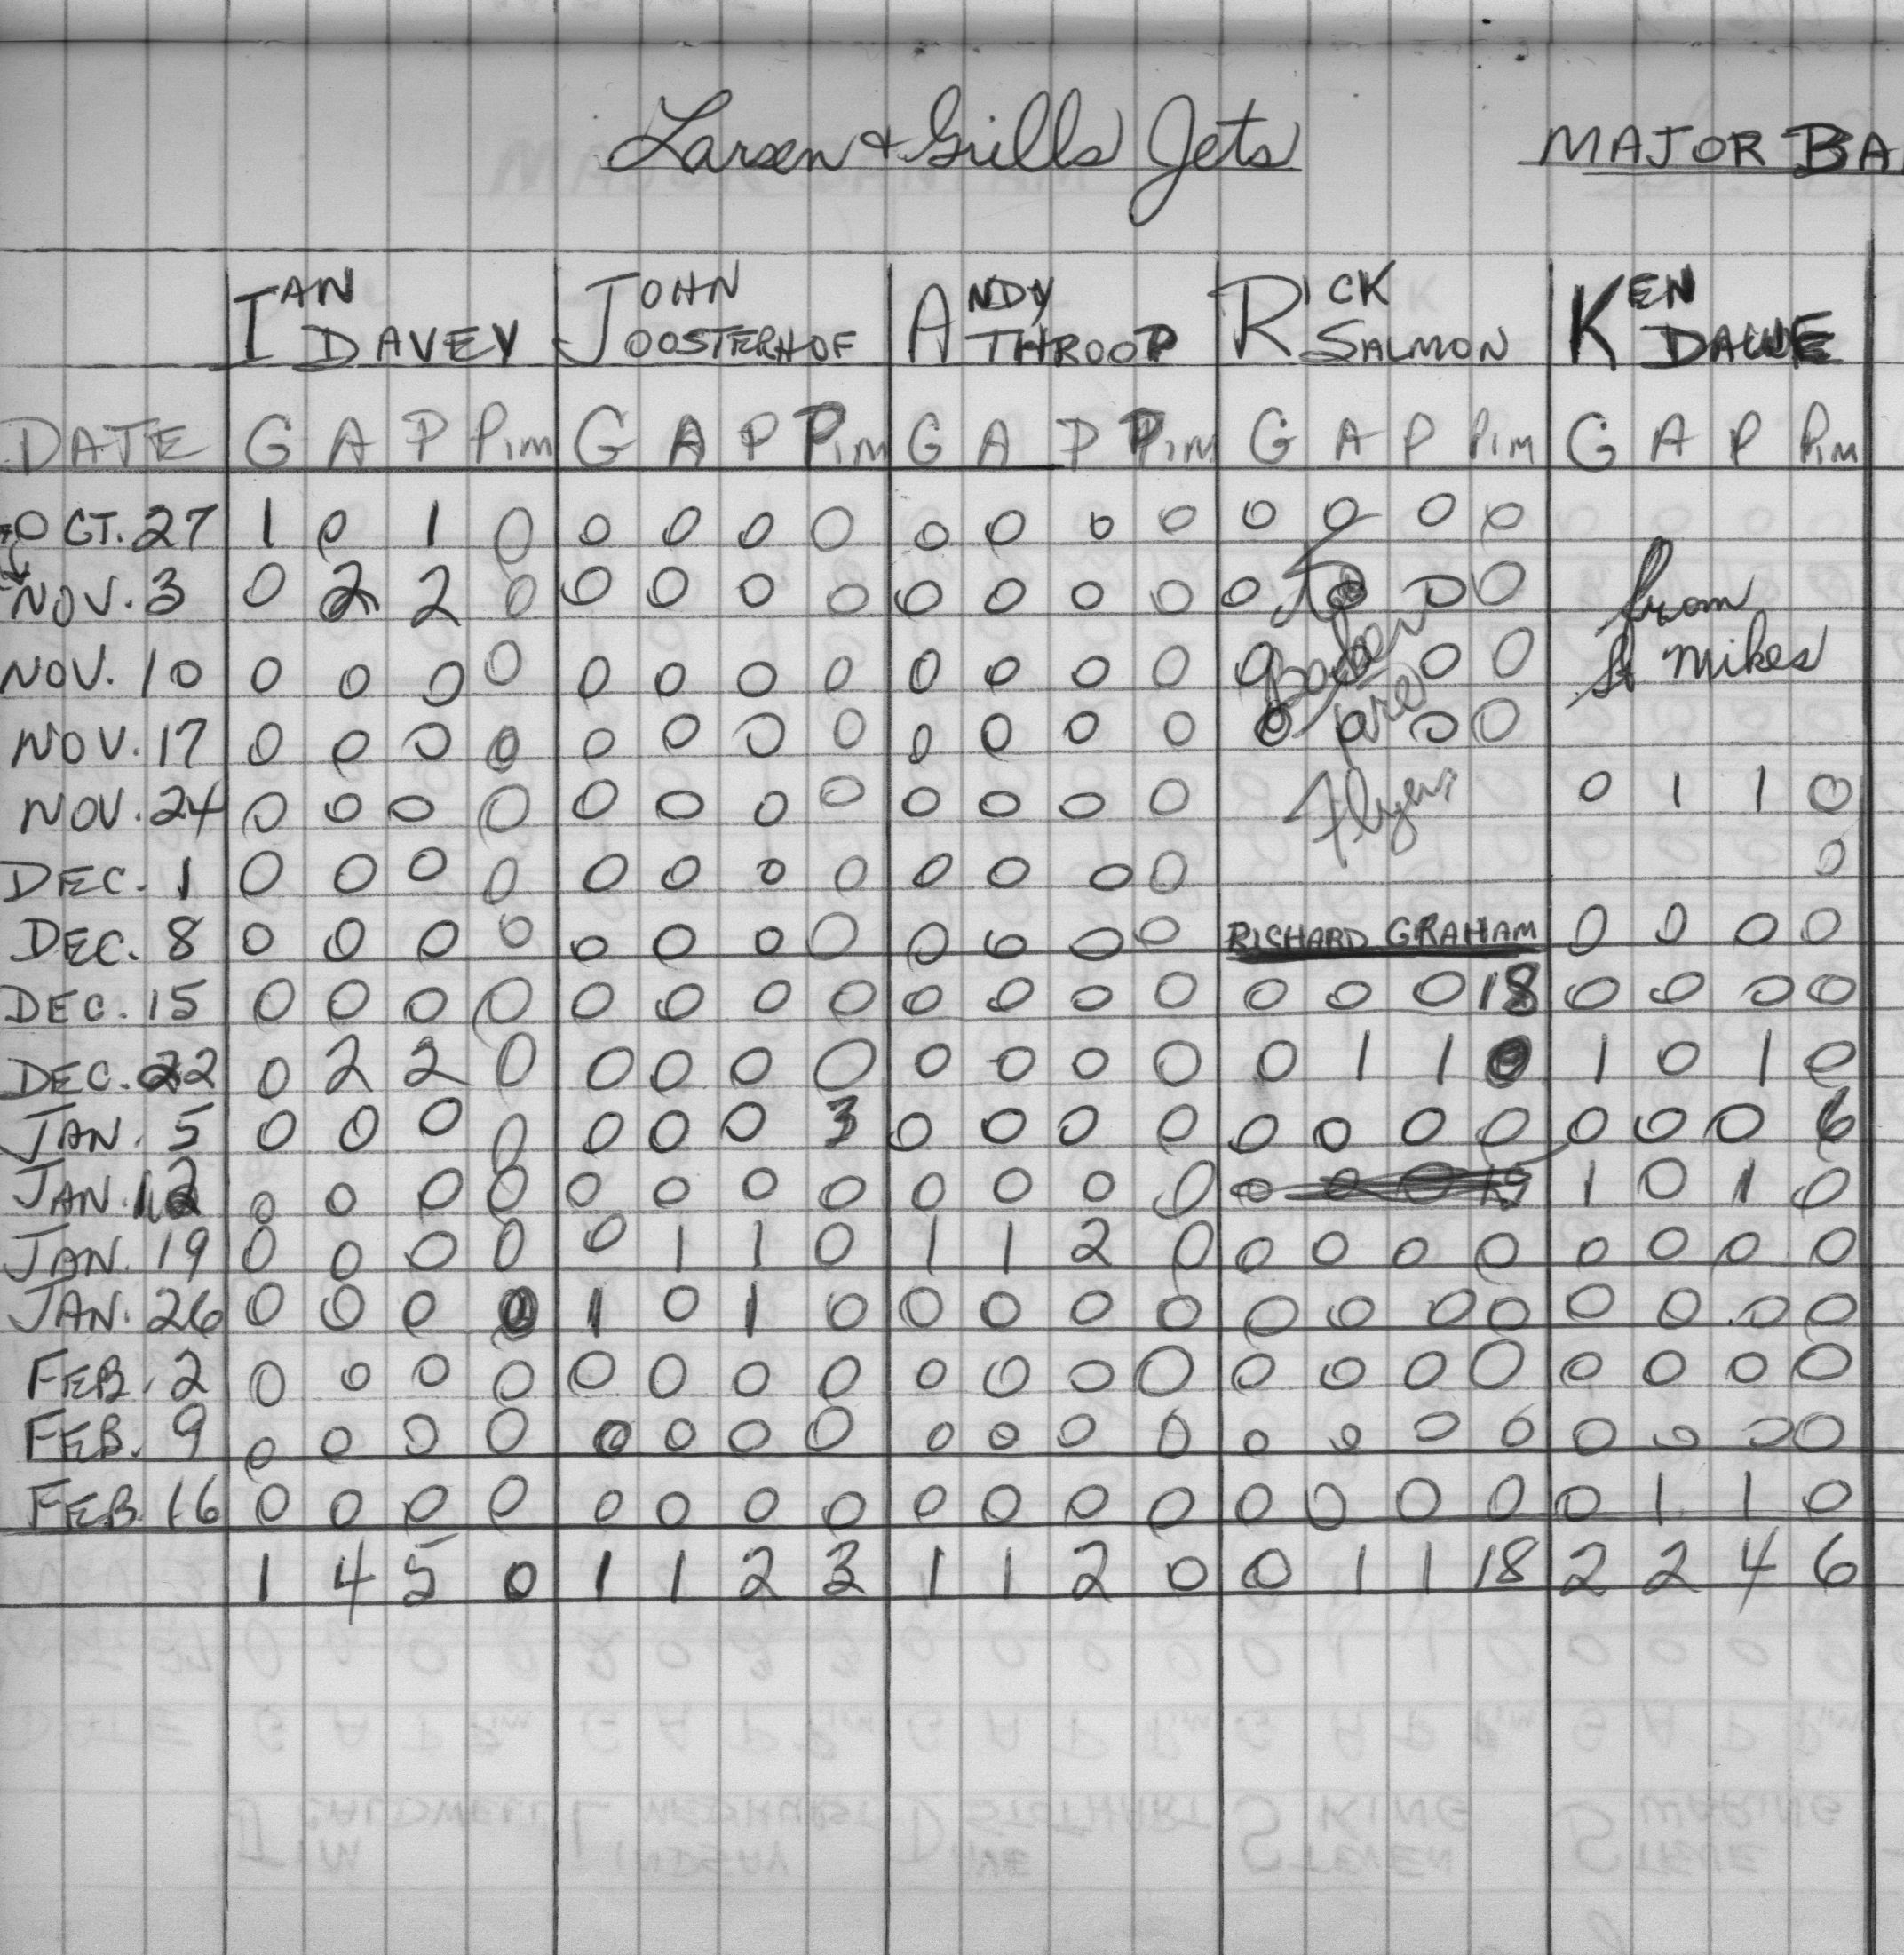 Larsen + Grills Jets MAJOR BA
IAN DAVEY JOHN OOSTERHOF ANDY THROOP RICK SALMON KEN DAWE
DATE G A P PIM G A P PIM G A P PIM G A P PIM G A P PIM
OCT. 27 1 0 1 0 0 0 0 0 0 0 0 0 0 0 0 0
NOV. 3 0 2 2 0 0 0 0 0 0 0 0 0 0 To 0 0 0 from
NOV. 10 0 0 0 0 0 0 0 0 0 0 0 0 0 0 0 0 St Mikes
NOV. 17 0 0 0 0 0 0 0 0 0 0 0 0 0 0 0 0
NOV. 24 0 0 0 0 0 0 0 0 0 0 0 0 Flyers 0 1 1 0
DEC. 1 0 0 0 0 0 0 0 0 0 0 0 0 0
DEC. 8 0 0 0 0 0 0 0 0 0 0 0 0 RICHARD GRAHAM 0 0 0 0
DEC. 15 0 0 0 0 0 0 0 0 0 0 0 0 0 0 0 18 0 0 0 0
DEC. 22 0 2 2 0 0 0 0 0 0 0 0 0 0 1 1 0 1 0 1 0
JAN. 5 0 0 0 0 0 0 0 3 0 0 0 0 0 0 0 0 0 0 0 6
JAN. 12 0 0 0 0 0 0 0 0 0 0 0 0 0 0 0 1 0 1 0
JAN. 19 0 0 0 0 0 1 1 0 1 1 2 0 0 0 0 0 0 0 0 0
JAN. 26 0 0 0 0 1 0 1 0 0 0 0 0 0 0 0 0 0 0 0 0
FEB. 2 0 0 0 0 0 0 0 0 0 0 0 0 0 0 0 0 0 0 0 0
FEB. 9 0 0 0 0 0 0 0 0 0 0 0 0 0 0 0 0 0 0 0 0
FEB. 16 0 0 0 0 0 0 0 0 0 0 0 0 0 0 0 0 0 1 1 0
1 4 5 0 1 1 2 3 1 1 2 0 0 1 1 18 2 2 4 6